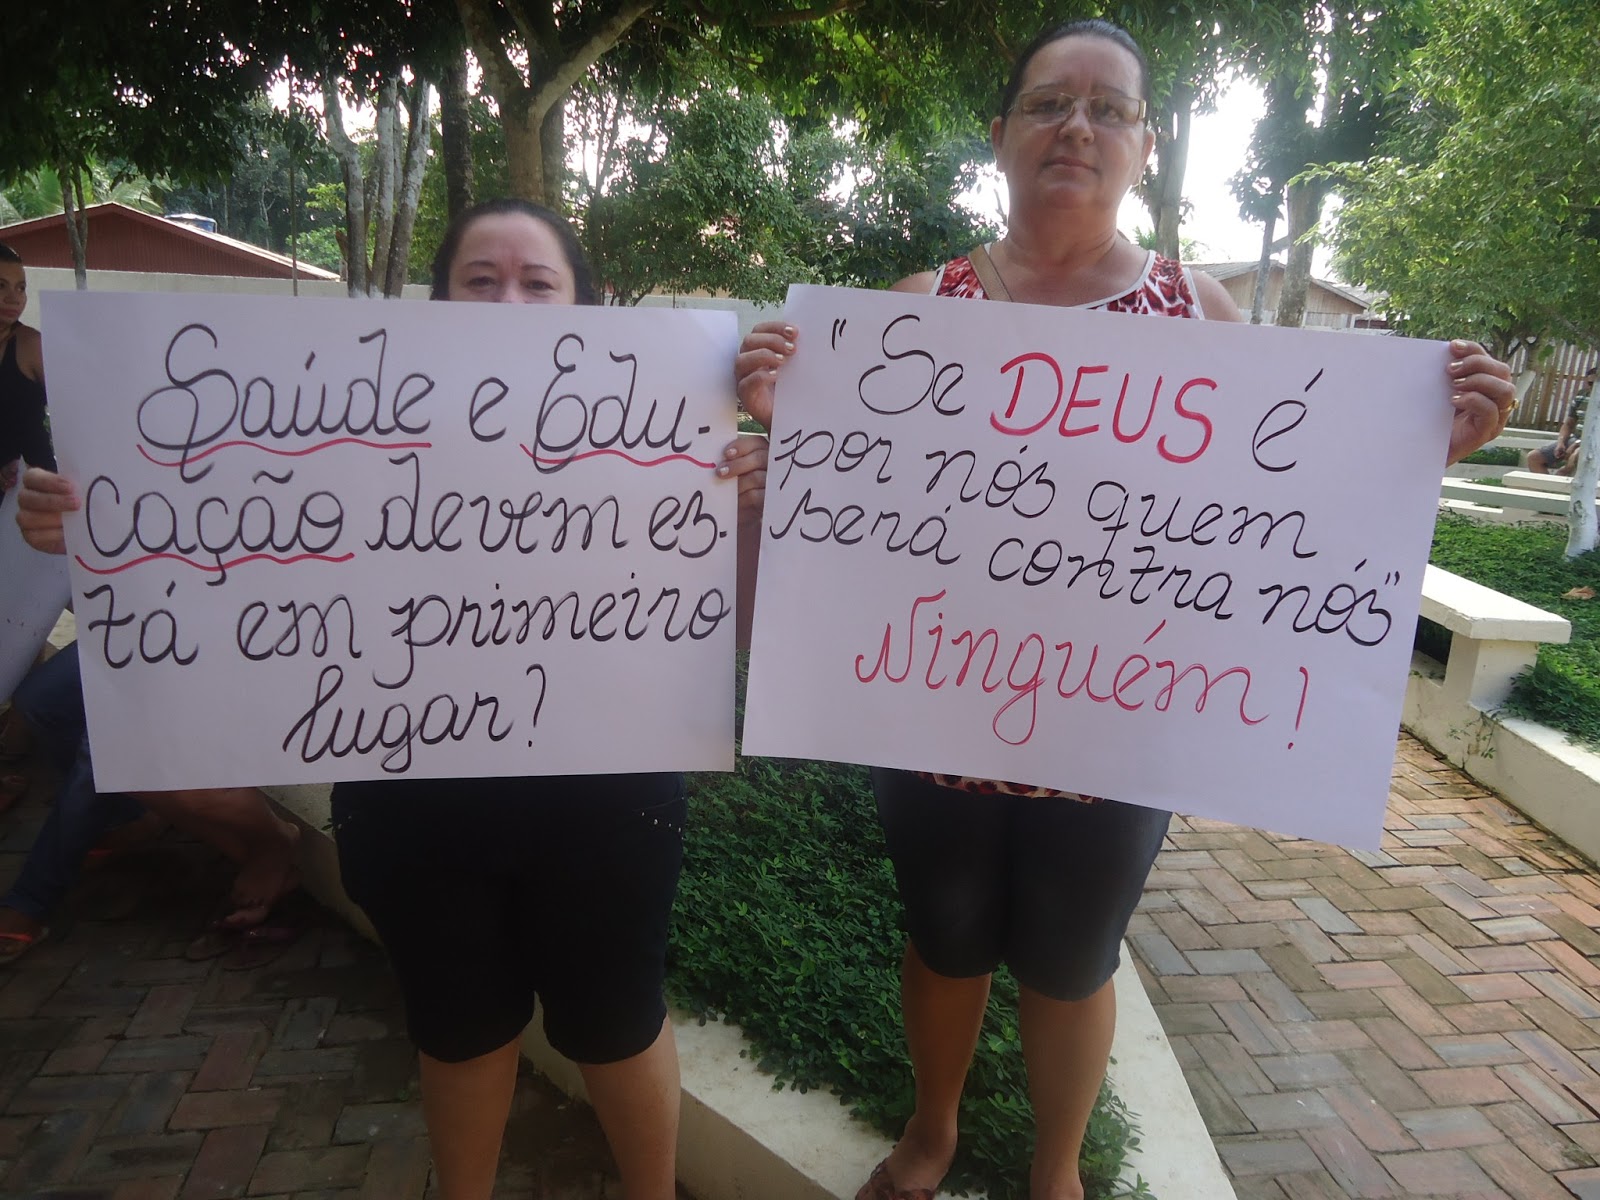 Saúde e Edu-
cação devem es-
tá em primeiro
lugar?
"Se DEUS é
por nós quem
será contra nós"
Ninguém!